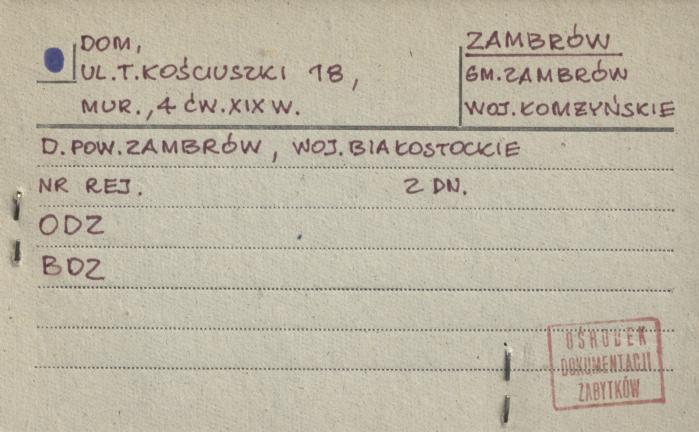 DOM,
UL. T. KOŚCIUSZKI 18,
MUR., 4 ĆW. XIX W.
ZAMBRÓW
GM. ZAMBRÓW
WOJ. ŁOMŻYŃSKIE
D. POW. ZAMBRÓW, WOJ. BIAŁOSTOCKIE
NR REJ. Z DN.
ODZ
BDZ
OŚRODEK
DOKUMENTACJI
ZABYTKÓW